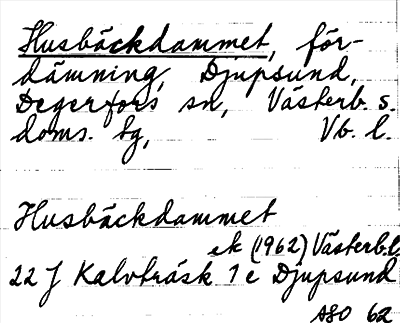 Husbäckdammet, för-
dämning, Djupsund,
Degerfors sn, Västerb. s.
doms. tg, Vb. l.
Husbäckdammet
ek (1962) Västerb.l.
22 J Kalvträsk 1 c Djupsund
ASO 62